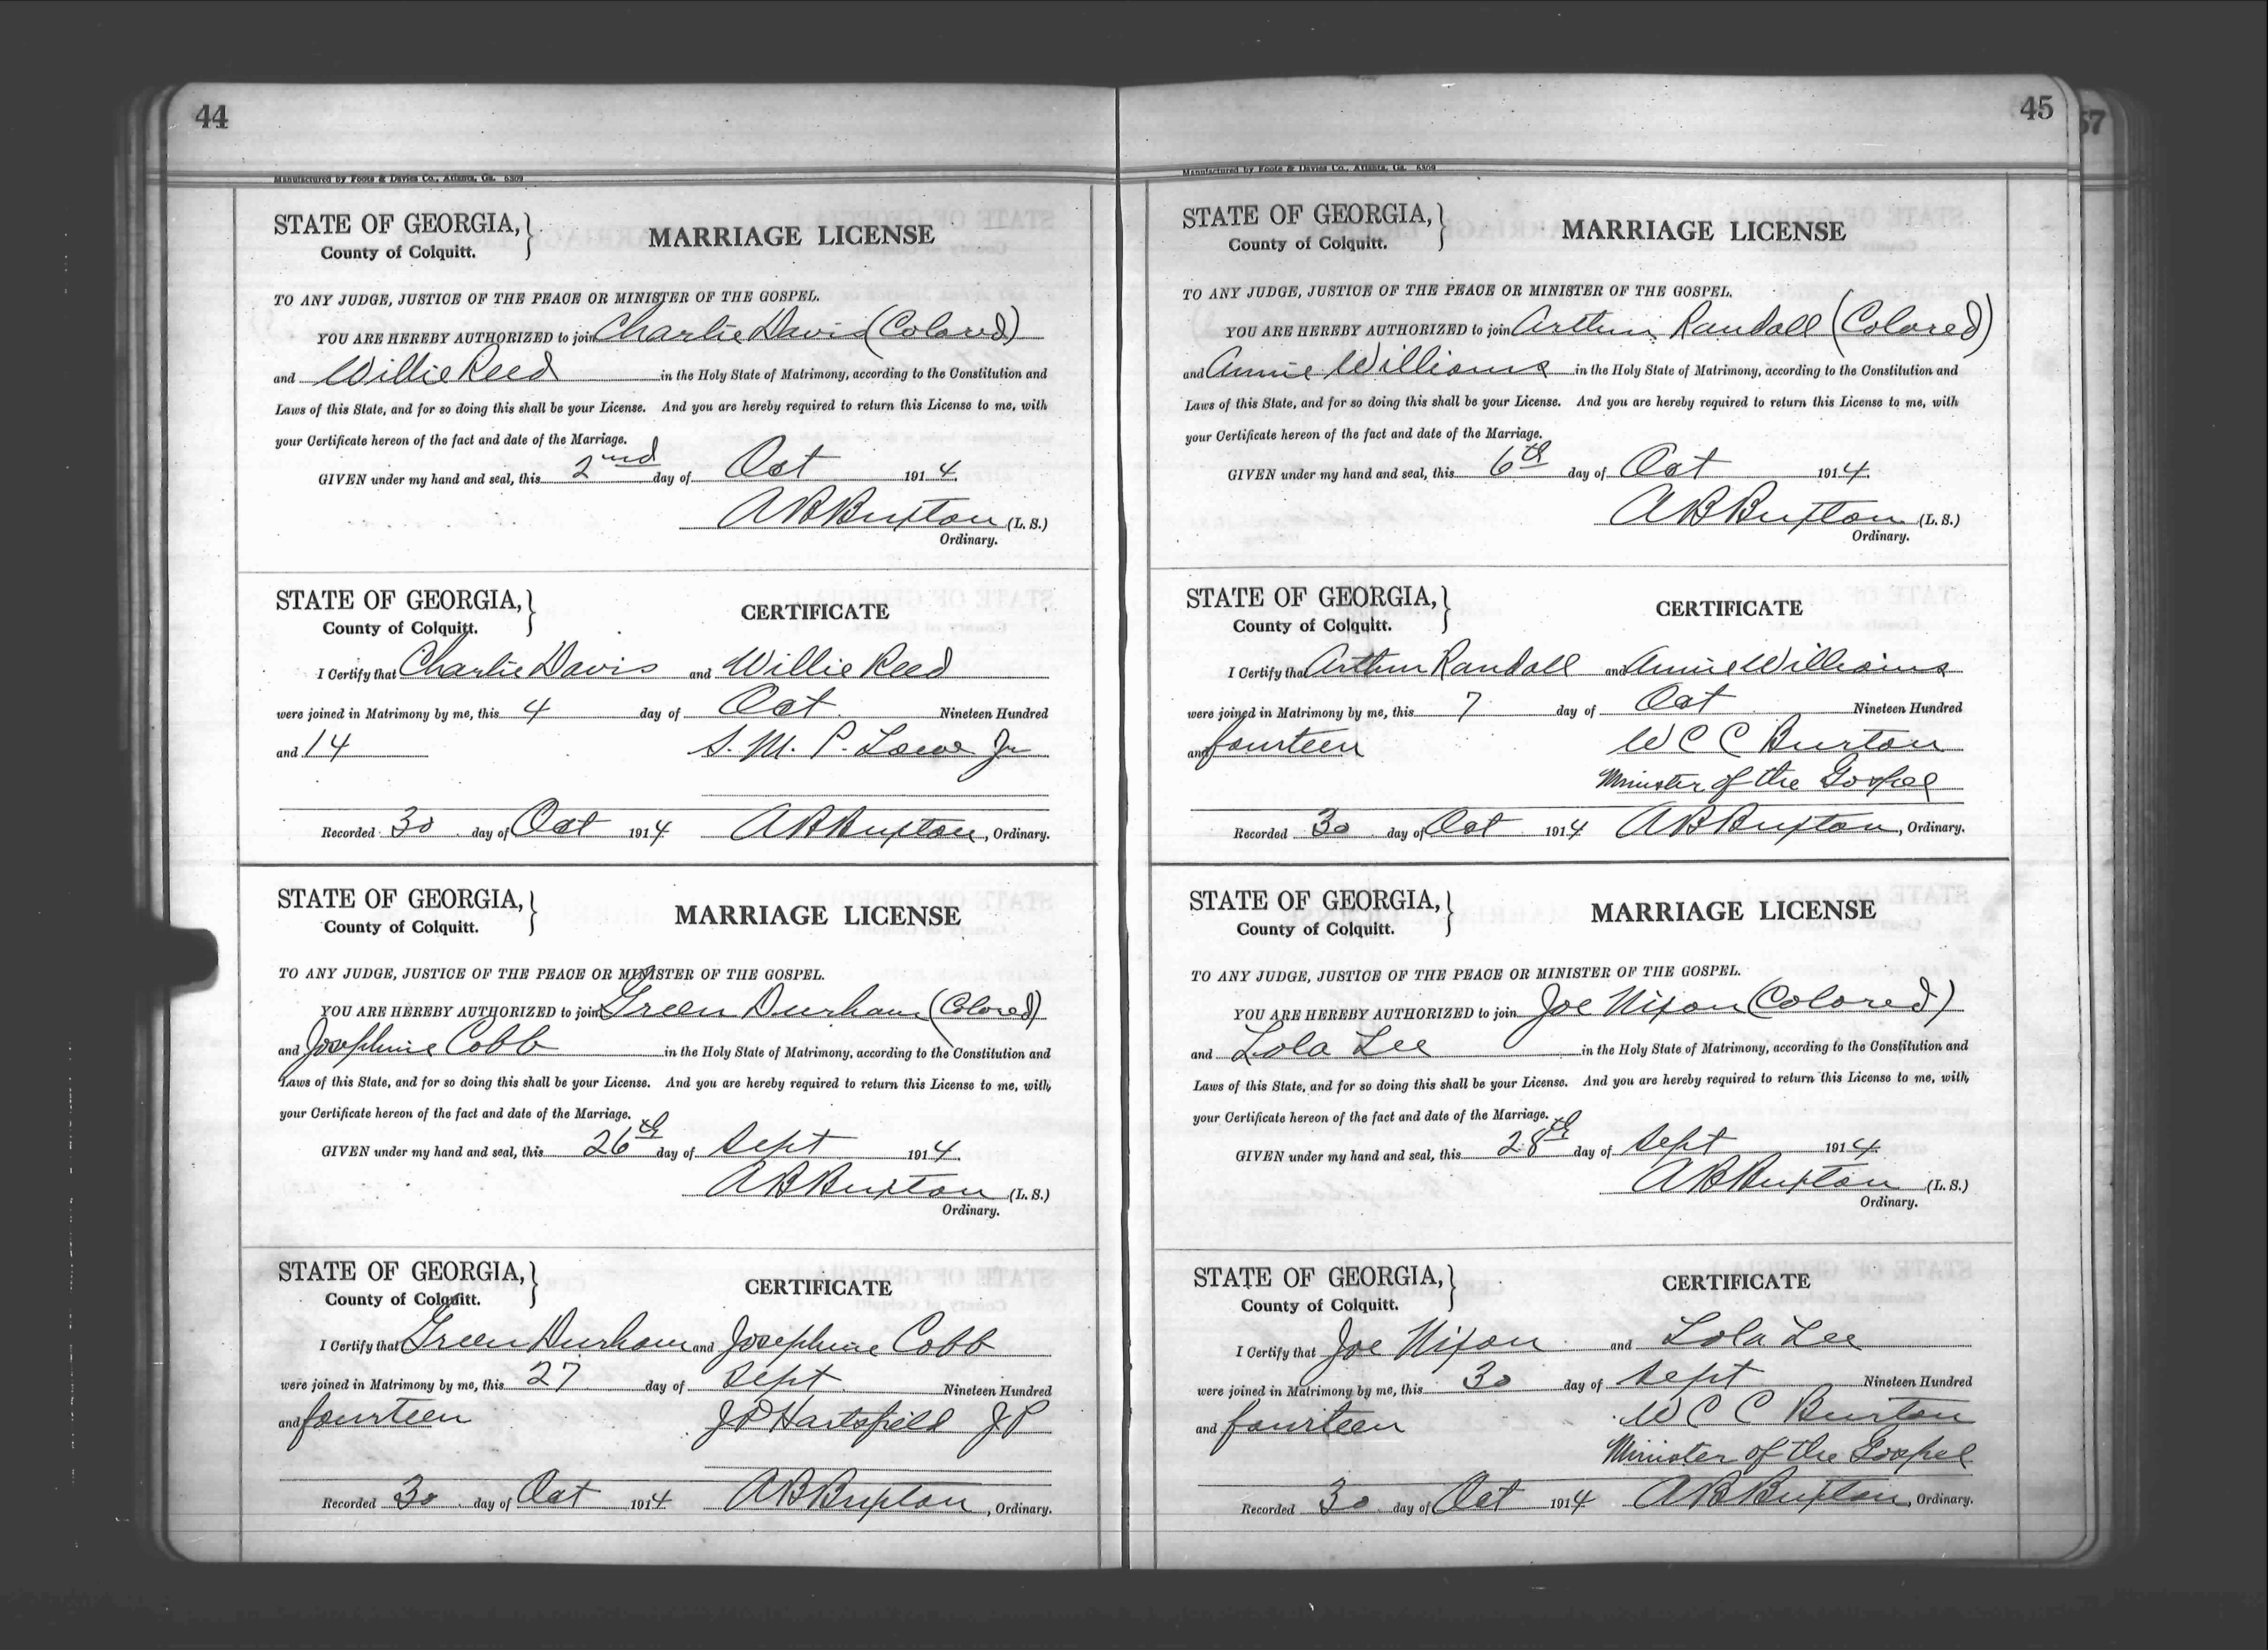 44
Manufactured by Foote & Davies Co., Atlanta, Ga. 6309
STATE OF GEORGIA,
County of Colquitt.
MARRIAGE LICENSE
TO ANY JUDGE, JUSTICE OF THE PEACE OR MINISTER OF THE GOSPEL.
YOU ARE HEREBY AUTHORIZED to join Charlie Davis (Colored)
and Willie Reed in the Holy State of Matrimony, according to the Constitution and
Laws of this State, and for so doing this shall be your License. And you are hereby required to return this License to me, with
your Certificate hereon of the fact and date of the Marriage.
GIVEN under my hand and seal, this 2nd day of Oct 1914.
A B Buxton (L. S.)
Ordinary.
STATE OF GEORGIA,
County of Colquitt.
CERTIFICATE
I Certify that Charlie Davis and Willie Reed
were joined in Matrimony by me, this 4 day of Oct Nineteen Hundred
and 14 S. M. P. Lowe Jr
Recorded 30 day of Oct 1914 A B Buxton, Ordinary.
STATE OF GEORGIA,
County of Colquitt.
MARRIAGE LICENSE
TO ANY JUDGE, JUSTICE OF THE PEACE OR MINISTER OF THE GOSPEL.
YOU ARE HEREBY AUTHORIZED to join Green Durham (Colored)
and Josephine Cobb in the Holy State of Matrimony, according to the Constitution and
Laws of this State, and for so doing this shall be your License. And you are hereby required to return this License to me, with,
your Certificate hereon of the fact and date of the Marriage.
GIVEN under my hand and seal, this 26th day of Sept 1914.
A B Buxton (L. S.)
Ordinary.
STATE OF GEORGIA,
County of Colquitt.
CERTIFICATE
I Certify that Green Durham and Josephine Cobb
were joined in Matrimony by me, this 27 day of Sept Nineteen Hundred
and fourteen J P Hartsfield J P
Recorded 30 day of Oct 1914 A B Buxton, Ordinary.
45
57
Manufactured by Foote & Davies Co., Atlanta, Ga. 6309
STATE OF GEORGIA,
County of Colquitt.
MARRIAGE LICENSE
TO ANY JUDGE, JUSTICE OF THE PEACE OR MINISTER OF THE GOSPEL.
YOU ARE HEREBY AUTHORIZED to join Arthur Randall (Colored)
and Annie Williams in the Holy State of Matrimony, according to the Constitution and
Laws of this State, and for so doing this shall be your License. And you are hereby required to return this License to me, with
your Certificate hereon of the fact and date of the Marriage.
GIVEN under my hand and seal, this 6th day of Oct 1914.
A B Buxton (L. S.)
Ordinary.
STATE OF GEORGIA,
County of Colquitt.
CERTIFICATE
I Certify that Arthur Randall and Annie Williams
were joined in Matrimony by me, this 7 day of Oct Nineteen Hundred
and fourteen W C C Burton
Minister of the Gospel
Recorded 30 day of Oct 1914 A B Buxton, Ordinary.
STATE OF GEORGIA,
County of Colquitt.
MARRIAGE LICENSE
TO ANY JUDGE, JUSTICE OF THE PEACE OR MINISTER OF THE GOSPEL.
YOU ARE HEREBY AUTHORIZED to join Joe Nixon (Colored)
and Lola Lee in the Holy State of Matrimony, according to the Constitution and
Laws of this State, and for so doing this shall be your License. And you are hereby required to return this License to me, with,
your Certificate hereon of the fact and date of the Marriage.
GIVEN under my hand and seal, this 28th day of Sept 1914.
A B Buxton (L. S.)
Ordinary.
STATE OF GEORGIA,
County of Colquitt.
CERTIFICATE
I Certify that Joe Nixon and Lola Lee
were joined in Matrimony by me, this 30 day of Sept Nineteen Hundred
and fourteen W C C Burton
Minister of the Gospel
Recorded 30 day of Oct 1914 A B Buxton, Ordinary.